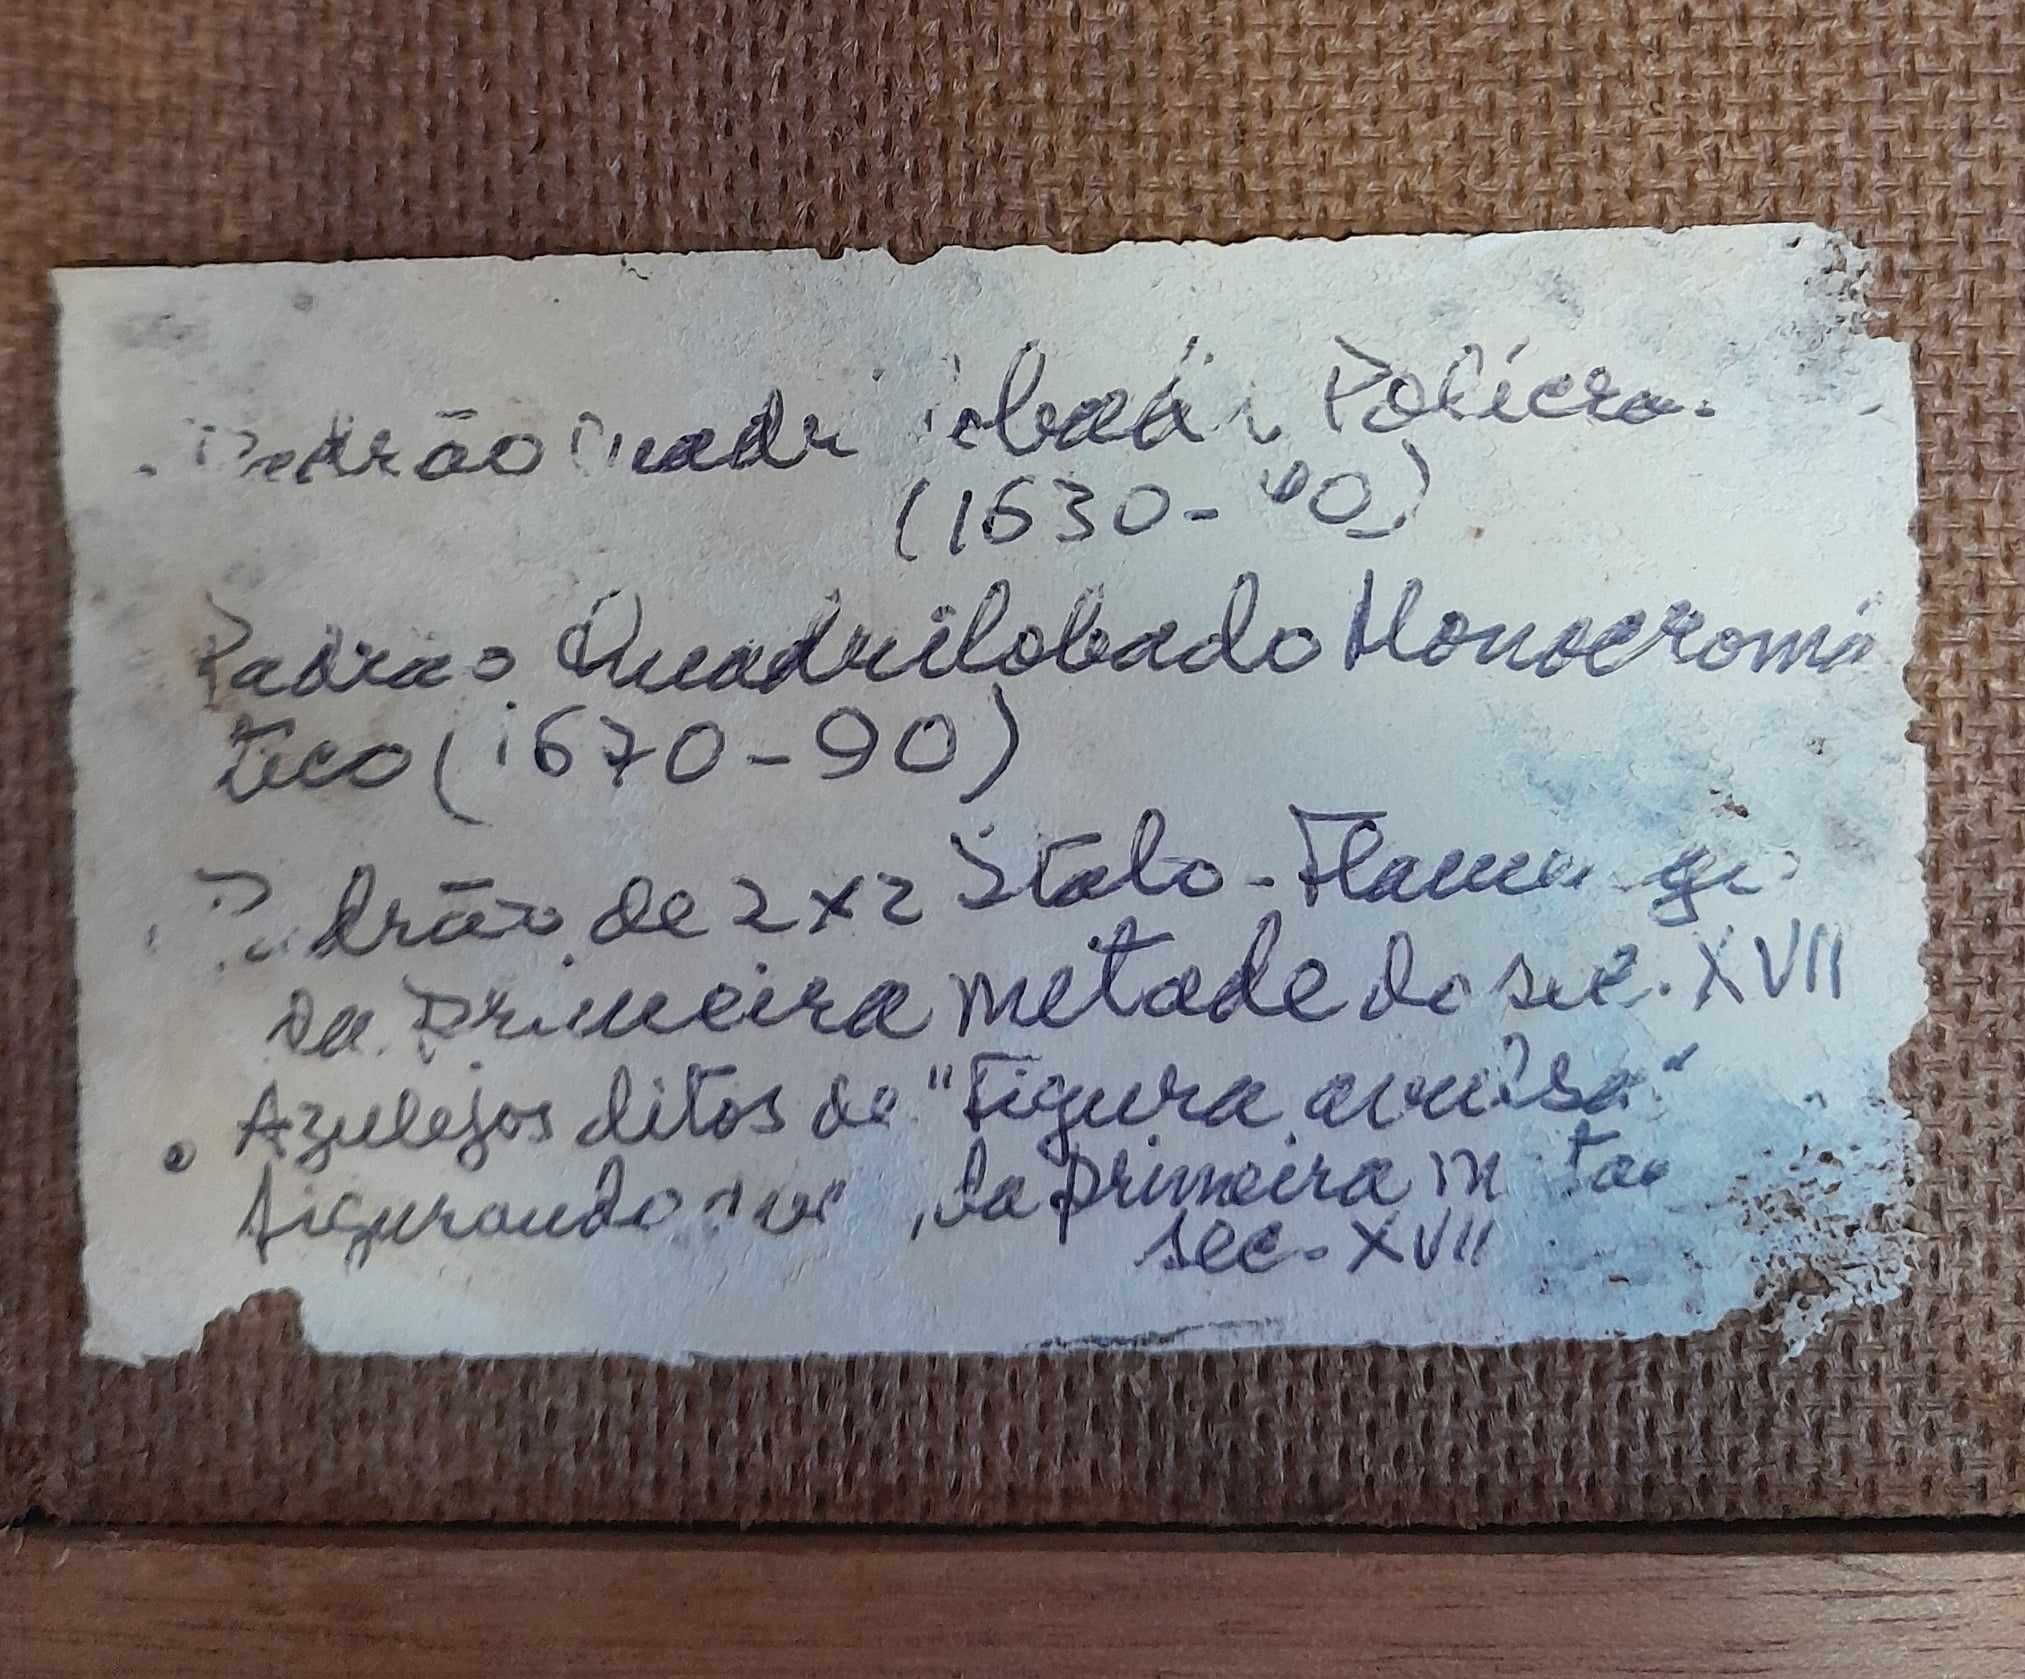 . Padrão Quadrilobado Polícro.
(1630-40)
Padrão Quadrilobado Monocromá
tico (1670-90)
Padrão de 2x2 Ítalo-Flamengo
da primeira metade do séc. XVII
• Azulejos ditos de "Figura avulsa"
figurando , da primeira
sec. XVII